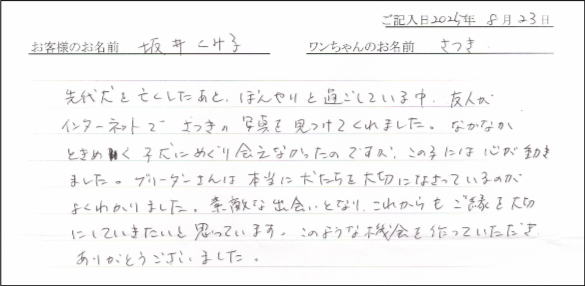 ご記入日2025年 8月23日
お客様のお名前 坂井くみ子 ワンちゃんのお名前 さつき
先代犬を亡くしたあと、ぼんやりと過ごしている中、友人が
インターネットで さつきの写真を見つけてくれました。なかなか
ときめく子犬にめぐり会えなかったのですが、この子には心が動き
ました。ブリーダーさんは本当に犬たちを大切になさっているのが
よくわかりました。素敵な出会いとなり、これからもご縁を大切
にしていきたいと思っています。このような機会を作っていただき
ありがとうございました。